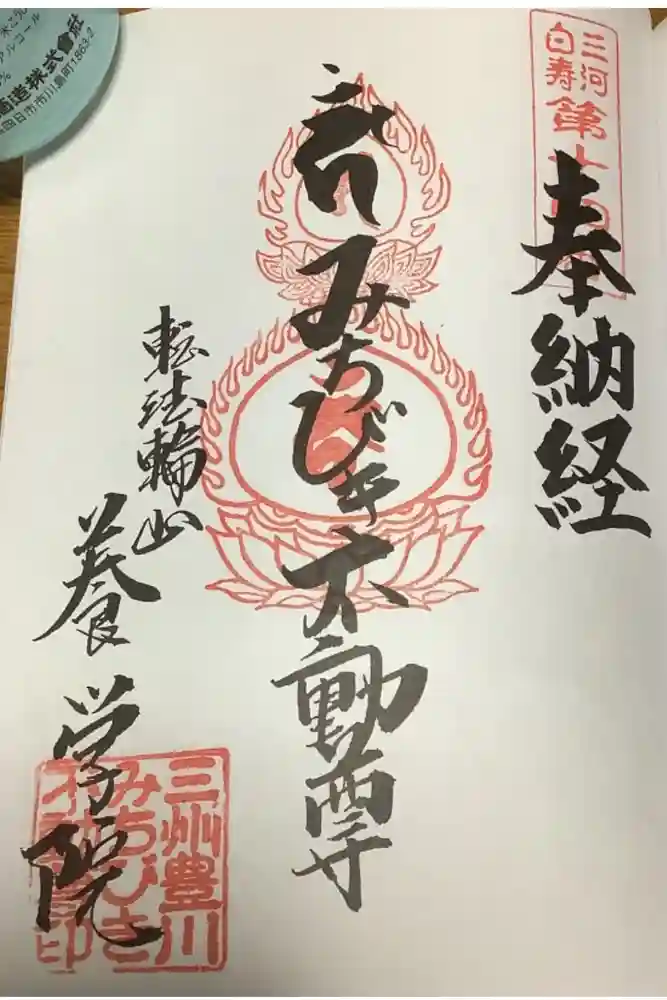 三河
白寿
第十四番
奉納経
みちびき不動尊
転法輪山
養学院
三州豊川
みちびき
不動尊印
造株式會社
四日市市川島町1863-2
アルコール